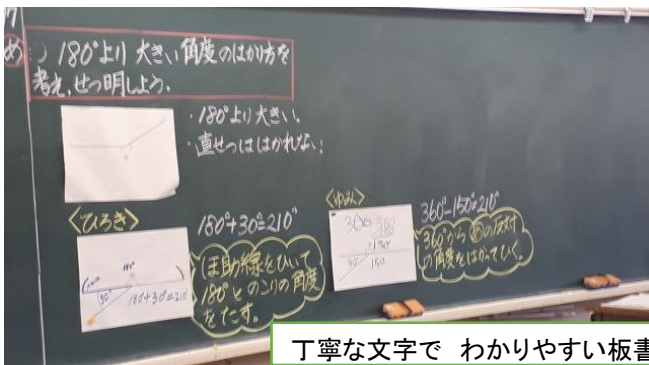 め 180°より大きい角度のはかり方を
考え、せつ明しよう。
・180°より大きい。
・直せつははかれない。
〈ひろき〉
180°+30°=210°
180°
30°
180+30=210
ほ助線をひいて
180°とのこりの角度
をたす。
〈ゆみ〉
360°-150°=210°
150
360°からあの反対
の角度をはかってひく。
丁寧な文字で わかりやすい板書